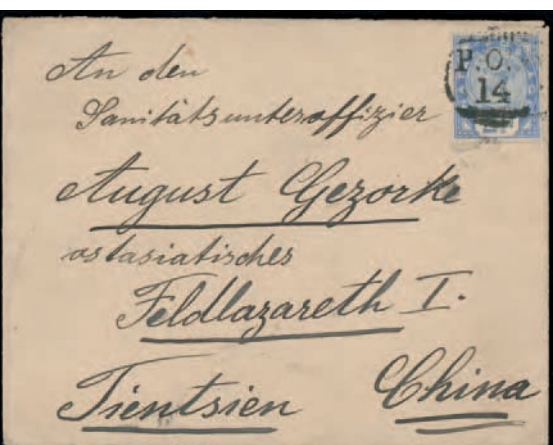 An den
Sanitätsunteroffizier
August Gezorke
ostasiatisches
Feldlazareth I.
Tientsien China
P.O.
14